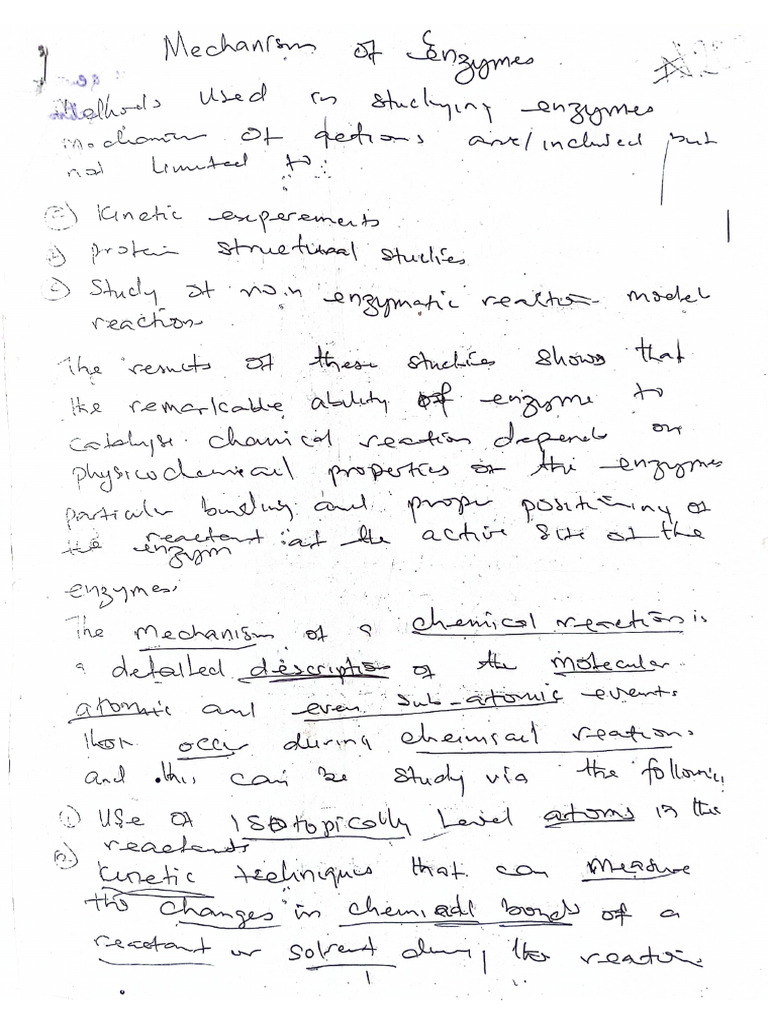 Mechanism of Enzymes
Methods Used in studying enzymes
mechanism of actions are/included but
not limited to:
a) Kinetic experements
b) protein structural studies
c) Study of non enzymatic reaction model
reaction
The results of these studies shows that
the remarkable ability of enzyme to
catalyse chemical reaction depends on
physicochemical properties of the enzymes
particular binding and proper positioning of
the reactant at the active site of the
enzym
enzymes.
The mechanism of a chemical reaction is
a detailed description of the molecular
atomic and even sub-atomic events
that occur during chemical reation.
and this can be study via the following
1) Use of isotopically level atoms in the
reactants
2) Kinetic techniques that can measure
the changes in chemical bonds of a
reactant or solvent during the reation